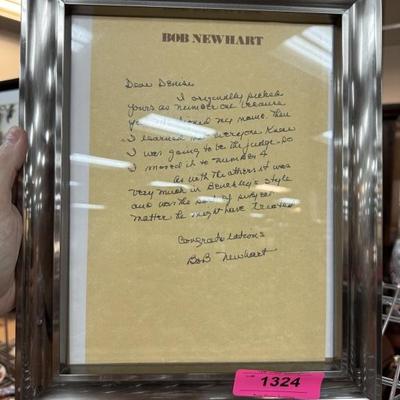 BOB NEWHART
Dear Denise
I originally picked
yours as number one because
you mentioned my name. Then
I learned that everyone knew
I was going to be the judge. So
I moved it to number 4
As with the others it was
very much in Benchley's style
and was the sort of subject
matter he might have treated
Congratulations
Bob Newhart
1324